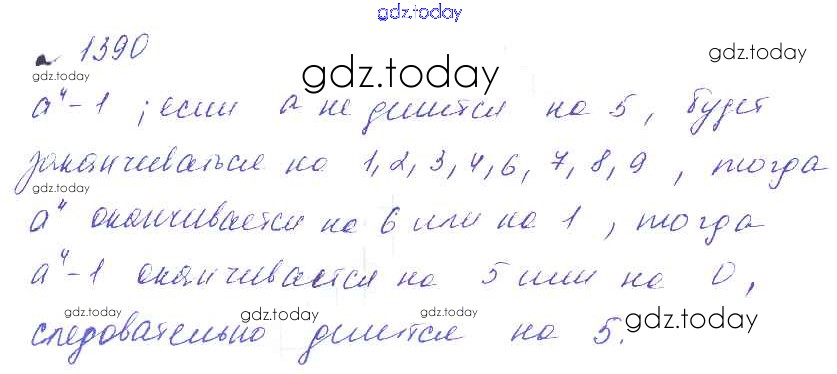 gdz.today
1390
gdz.today
gdz.today
gdz.today
a⁴-1 ; если a не делится на 5, будет
заканчиваться на 1, 2, 3, 4, 6, 7, 8, 9, тогда
gdz.today
a⁴ оканчивается на 6 или на 1, тогда
a⁴-1 оканчивается на 5 или на 0,
gdz.today gdz.today gdz.today gdz.today
следовательно делится на 5.